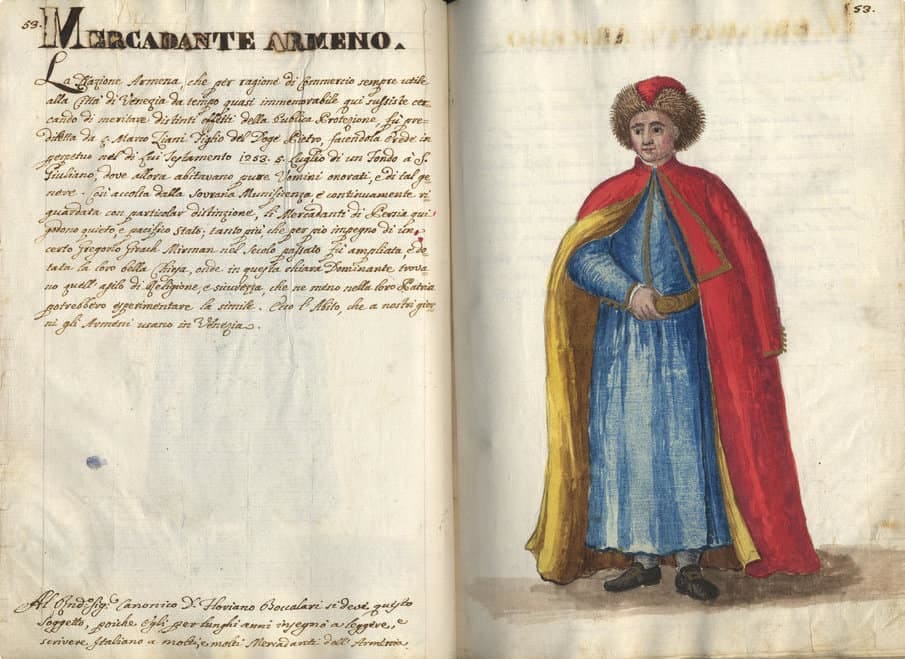 53.
MERCADANTE ARMENO.
La Nazione Armena, che per ragione di Commercio sempre utile
alla Città di Venezia da tempo quasi immemorabile qui sussiste cer=
cando di meritare distinti effetti della Publica Protezione, fù pre=
diletta da S. Marco Ziani Figlio del Doge Pietro, facendola erede in
perpetuo nel di Lui Testamento 1253. 5. Luglio di un Fondo à S.
Giuliano, dove allora abitavano pure Uomini onorati, e di tal ge=
nere. Cosi accolta dalla Sovrana Munificenza e continuamente ri=
guardata con particolar distinzione, li Mercadanti di Persia qui
godono quieto, e pacifico Stato; tanto più, che per pio impegno di un
certo Gregorio Mirman nel Secolo passato fù ampliata, e do=
tata la loro bella Chiesa, onde in questa chiara Dominante trova
no quell'asilo di Religione, e sicurezza, che ne meno nella loro Patria
potrebbero esperimentare la simile. Ecco l'Abito, che a nostri gior=
ni gli Armeni usano in Venezia.
Al Sig.r Canonico D.n Floriano Boccalari si deve questo
Soggetto, poiche egli per lunghi anni insegnò a leggere, e
scrivere Italiano a molti, e molti Mercadanti dell'Armenia.
53.